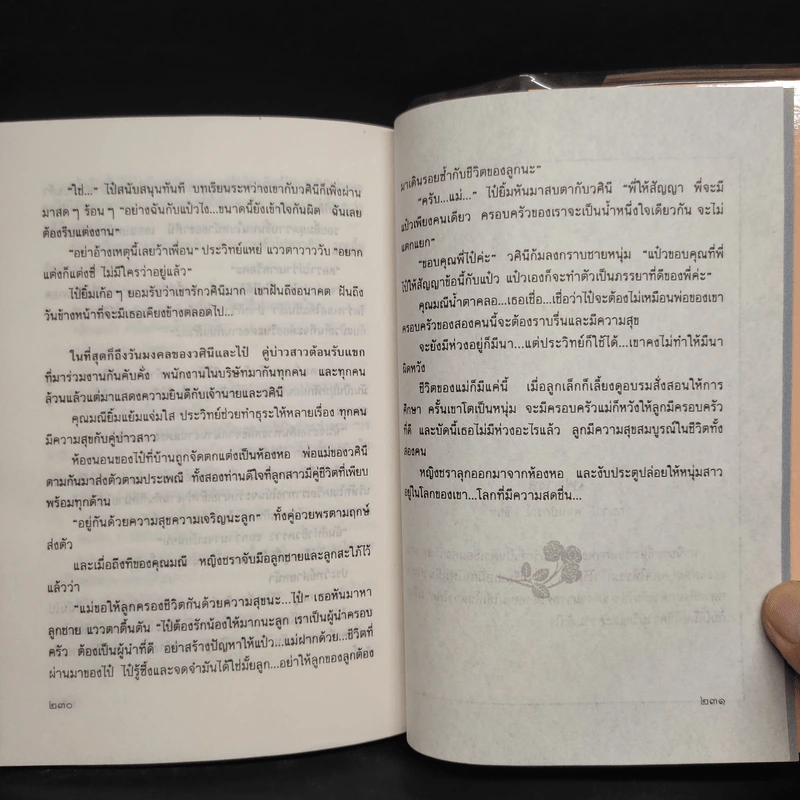 "ใช่..." ไป๋สนับสนุนทันที บทเรียนระหว่างเขากับวศินีก็เพิ่งผ่าน
มาสดๆ ร้อนๆ "อย่างฉันกับแป๋วไง...ขนาดนี้ยังเข้าใจกันผิด ฉันเลย
ต้องรีบแต่งงาน"
"อย่าอ้างเหตุนี้เลยว้าเพื่อน" ประวิทย์แหย่ แววตาวาววับ "อยาก
แต่งก็แต่งซี่ ไม่มีใครว่าอยู่แล้ว"
ไป๋ยิ้มเก้อๆ ยอมรับว่าเขารักวศินีมาก เขาฝันถึงอนาคต ฝันถึง
วันข้างหน้าที่จะมีเธอเคียงข้างตลอดไป...
ในที่สุดก็ถึงวันมงคลของวศินีและไป๋ คู่บ่าวสาวต้อนรับแขก
ที่มาร่วมงานกันคับคั่ง พนักงานในบริษัทมากันทุกคน และทุกคน
ล้วนแล้วแต่มาแสดงความยินดีกับเจ้านายและวศินี
คุณมณียิ้มแย้มแจ่มใส ประวิทย์ช่วยทำธุระให้หลายเรื่อง ทุกคน
มีความสุขกับคู่บ่าวสาว
ห้องนอนของไป๋ที่บ้านถูกจัดตกแต่งเป็นห้องหอ พ่อแม่ของวศินี
ตามกันมาส่งตัวตามประเพณี ทั้งสองท่านดีใจที่ลูกสาวมีคู่ชีวิตที่เพียบ
พร้อมทุกด้าน
"อยู่กันด้วยความสุขความเจริญนะลูก" ทั้งคู่อวยพรตามฤกษ์
ส่งตัว
และเมื่อถึงทีของคุณมณี หญิงชราจับมือลูกชายและลูกสะใภ้ไว้
แล้วว่า
"แม่ขอให้ลูกครองชีวิตกันด้วยความสุขนะ...ไป๋" เธอหันมาหา
ลูกชาย แววตาตื้นตัน "ไป๋ต้องรักน้องให้มากนะลูก เราเป็นผู้นำครอบ
ครัว ต้องเป็นผู้นำที่ดี อย่าสร้างปัญหาให้แป๋ว...แม่ฝากด้วย...ชีวิตที่
ผ่านมาของไป๋ ไป๋รู้ซึ้งและจดจำมันได้ใช่มั้ยลูก...อย่าให้ลูกของลูกต้อง
๒๓๐
มาเดินรอยซ้ำกับชีวิตของลูกนะ"
"ครับ...แม่..." ไป๋ยิ้มหันมาสบตากับวศินี "พี่ให้สัญญา พี่จะมี
แป๋วเพียงคนเดียว ครอบครัวของเราจะเป็นน้ำหนึ่งใจเดียวกัน จะไม่
แตกแยก"
"ขอบคุณพี่ไป๋ค่ะ" วศินีก้มลงกราบชายหนุ่ม "แป๋วขอบคุณที่พี่
ไป๋ให้สัญญาข้อนี้กับแป๋ว แป๋วเองก็จะทำตัวเป็นภรรยาที่ดีของพี่ค่ะ"
คุณมณีน้ำตาคลอ...เธอเชื่อ...เชื่อว่าไป๋จะต้องไม่เหมือนพ่อของเขา
ครอบครัวของสองคนนี้จะต้องราบรื่นและมีความสุข
จะยังมีห่วงอยู่ก็มีนา...แต่ประวิทย์ก็ใช้ได้...เขาคงไม่ทำให้มีนา
ผิดหวัง
ชีวิตของแม่ก็มีแค่นี้ เมื่อลูกเล็กก็เลี้ยงดูอบรมสั่งสอนให้การ
ศึกษา ครั้นเขาโตเป็นหนุ่ม จะมีครอบครัวแม่ก็หวังให้ลูกมีครอบครัว
ที่ดี และบัดนี้เธอไม่มีห่วงอะไรแล้ว ลูกมีความสุขสมบูรณ์ในชีวิตทั้ง
สองคน
หญิงชราลุกออกมาจากห้องหอ และงับประตูปล่อยให้หนุ่มสาว
อยู่ในโลกของเขา...โลกที่มีความสดชื่น...
๒๓๑